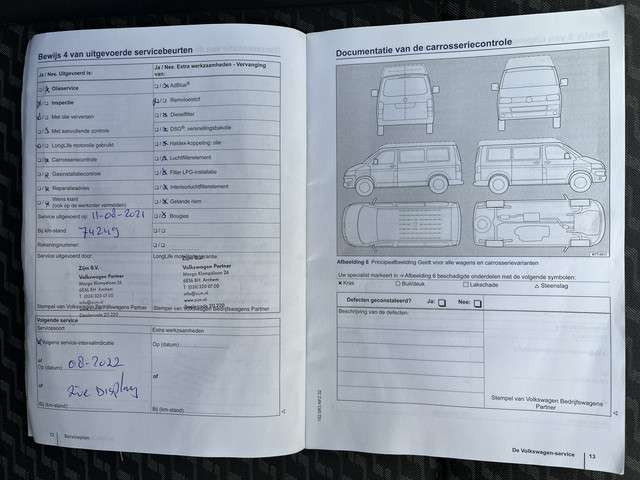 Bewijs 4 van uitgevoerde servicebeurten
Ja / Nee. Uitgevoerd is:
Ja / Nee. Extra werkzaamheden - Vervanging van:
Olieservice
AdBlue®
Inspectie
Remvloeistof
Met olie verversen
Dieselfilter
Met aanvullende controle
DSG®: versnellingsbakolie
LongLife motorolie gebruikt
Haldex-koppeling: olie
Carrosseriecontrole
Luchtfilterelement
Gasinstallatiecontrole
Filter LPG-installatie
Reparatieadvies
Interieurluchtfilterelement
Wens klant
(ook op de werkorder vermelden)
Getande riem
Service uitgevoerd op: 11-08-2021
Bougies
Bij km-stand: 74249
Rekeningnummer:
Service uitgevoerd door:
LongLife mobiliteitsgarantie
Zijm B.V.
Volkswagen Partner
Marga Klompélaan 26
6836 BH Arnhem
Zijm B.V.
Volkswagen Partner
Marga Klompélaan 26
6836 BH Arnhem
Stempel van Volkswagen Bedrijfswagens Partner
Stempel van Volkswagen Bedrijfswagens Partner
Volgende service
Servicesoort
Extra werkzaamheden
Volgens service-intervalindicatie
Op (datum)
of
Op (datum) 08-2022
of
of
zie Display
Bij (km-stand)
Bij (km-stand)
12 Serviceplan
Documentatie van de carrosseriecontrole
Afbeelding 6 Principeafbeelding Geldt voor alle wagens en carrosserievarianten
Uw specialist markeert in → Afbeelding 6 beschadigde onderdelen met de volgende symbolen:
× Kras ○ Buil/deuk □ Lakschade △ Steenslag
Defecten geconstateerd? Ja: Nee:
Beschrijving van de defecten:
Stempel van Volkswagen Bedrijfswagens
Partner
De Volkswagen-service 13